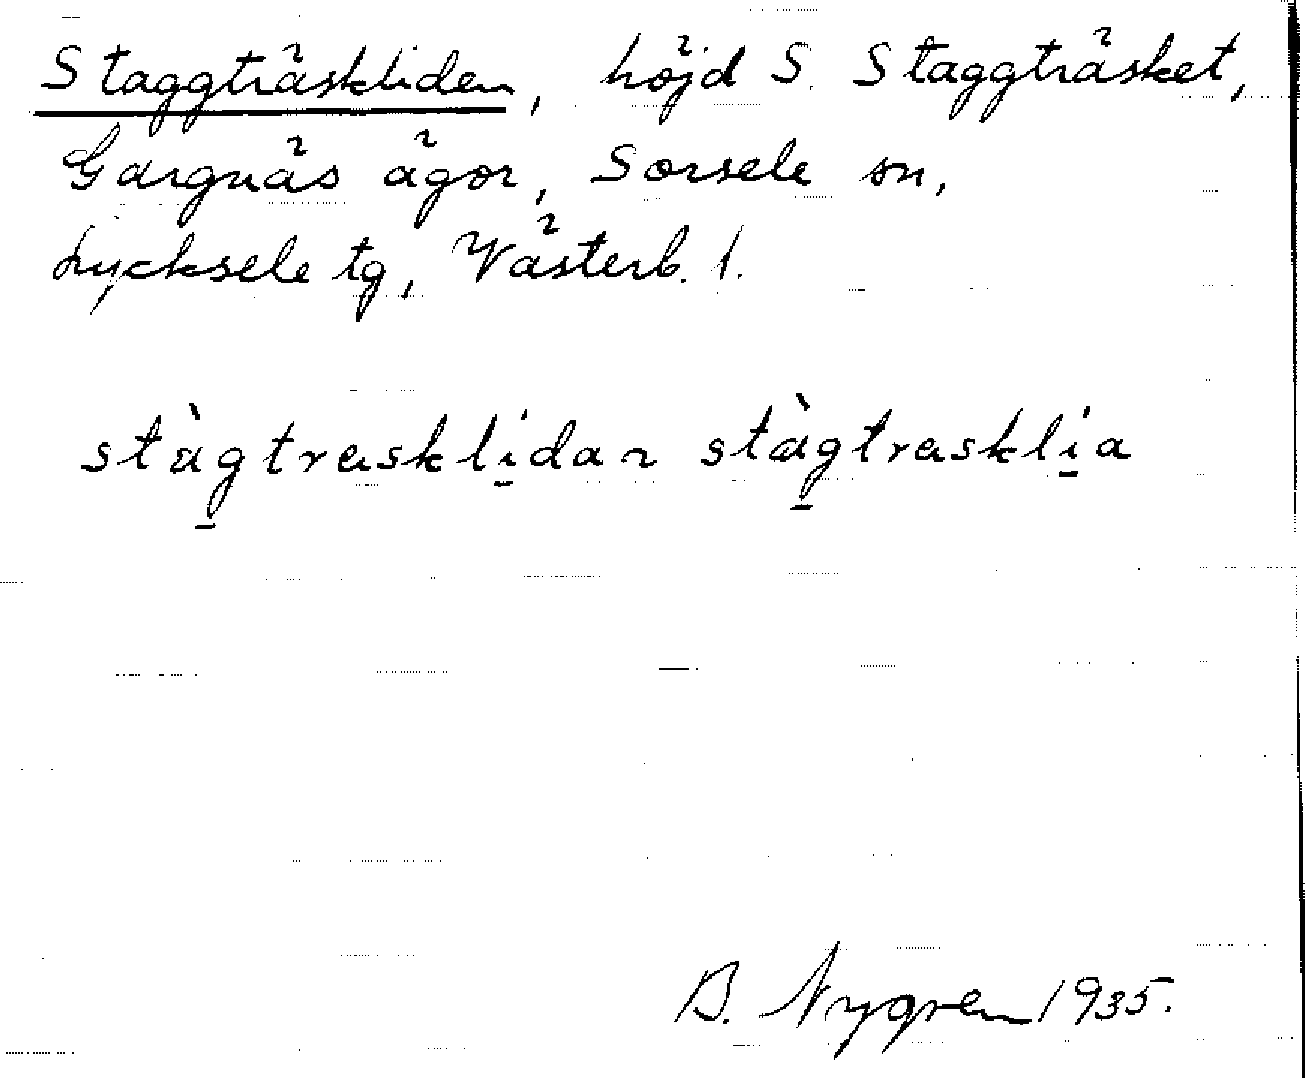 Staggträskliden, höjd S. Staggträsket,
Gargnäs ägor, Sorsele sn,
Lycksele tg, Västerb. l.
stàg̱traskli̱dan stàg̱traskli̱a
B. Nygren 1935.